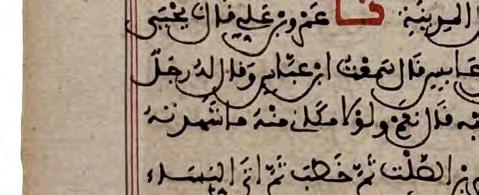 المدينة نا عمرو بن علي قال نا يحيى
عابس قال سمعت ابن عباس وقال له رجل
قال نعم ولولا مكاني منه ما شهدته
بن الصلت ثم خطب ثم اتى النساء